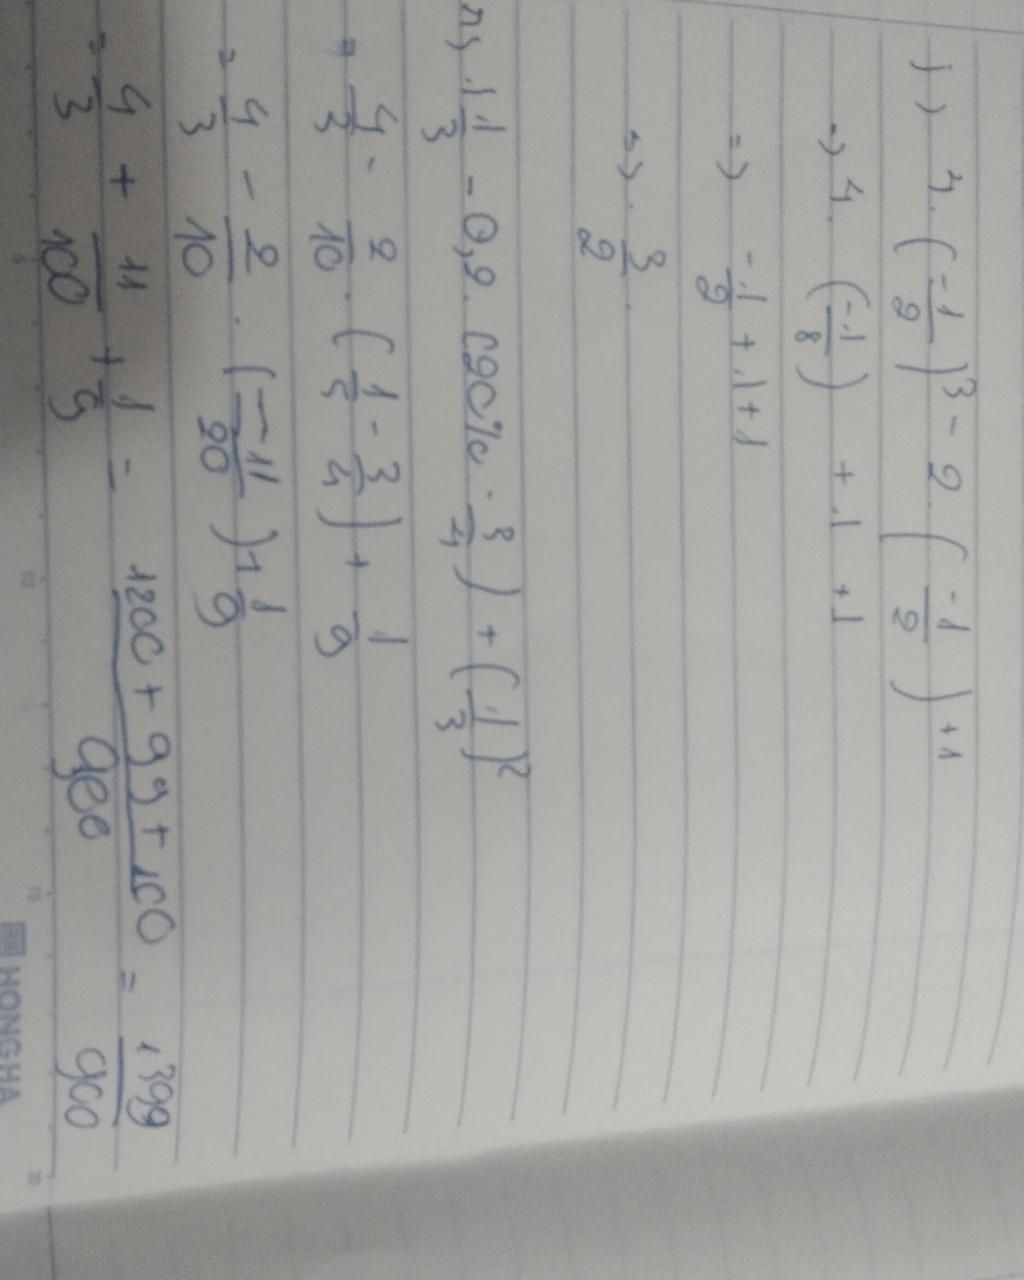 j) 4.(-1/2)³ - 2.(-1/2) + 1
=> 4. (-1/8) + 1 + 1
=> -1/2 + 1 + 1
=> 3/2
n, 1 1/3 - 0,2. (20% - 3/4) + (1/3)²
= 4/3 - 2/10 . (1/5 - 3/4) + 1/9
= 4/3 - 2/10 . (-11/20) + 1/9
= 4/3 + 11/100 + 1/9 = 1200 + 99 + 100/900 = 1399/900
5 10 15 20
HONGHA